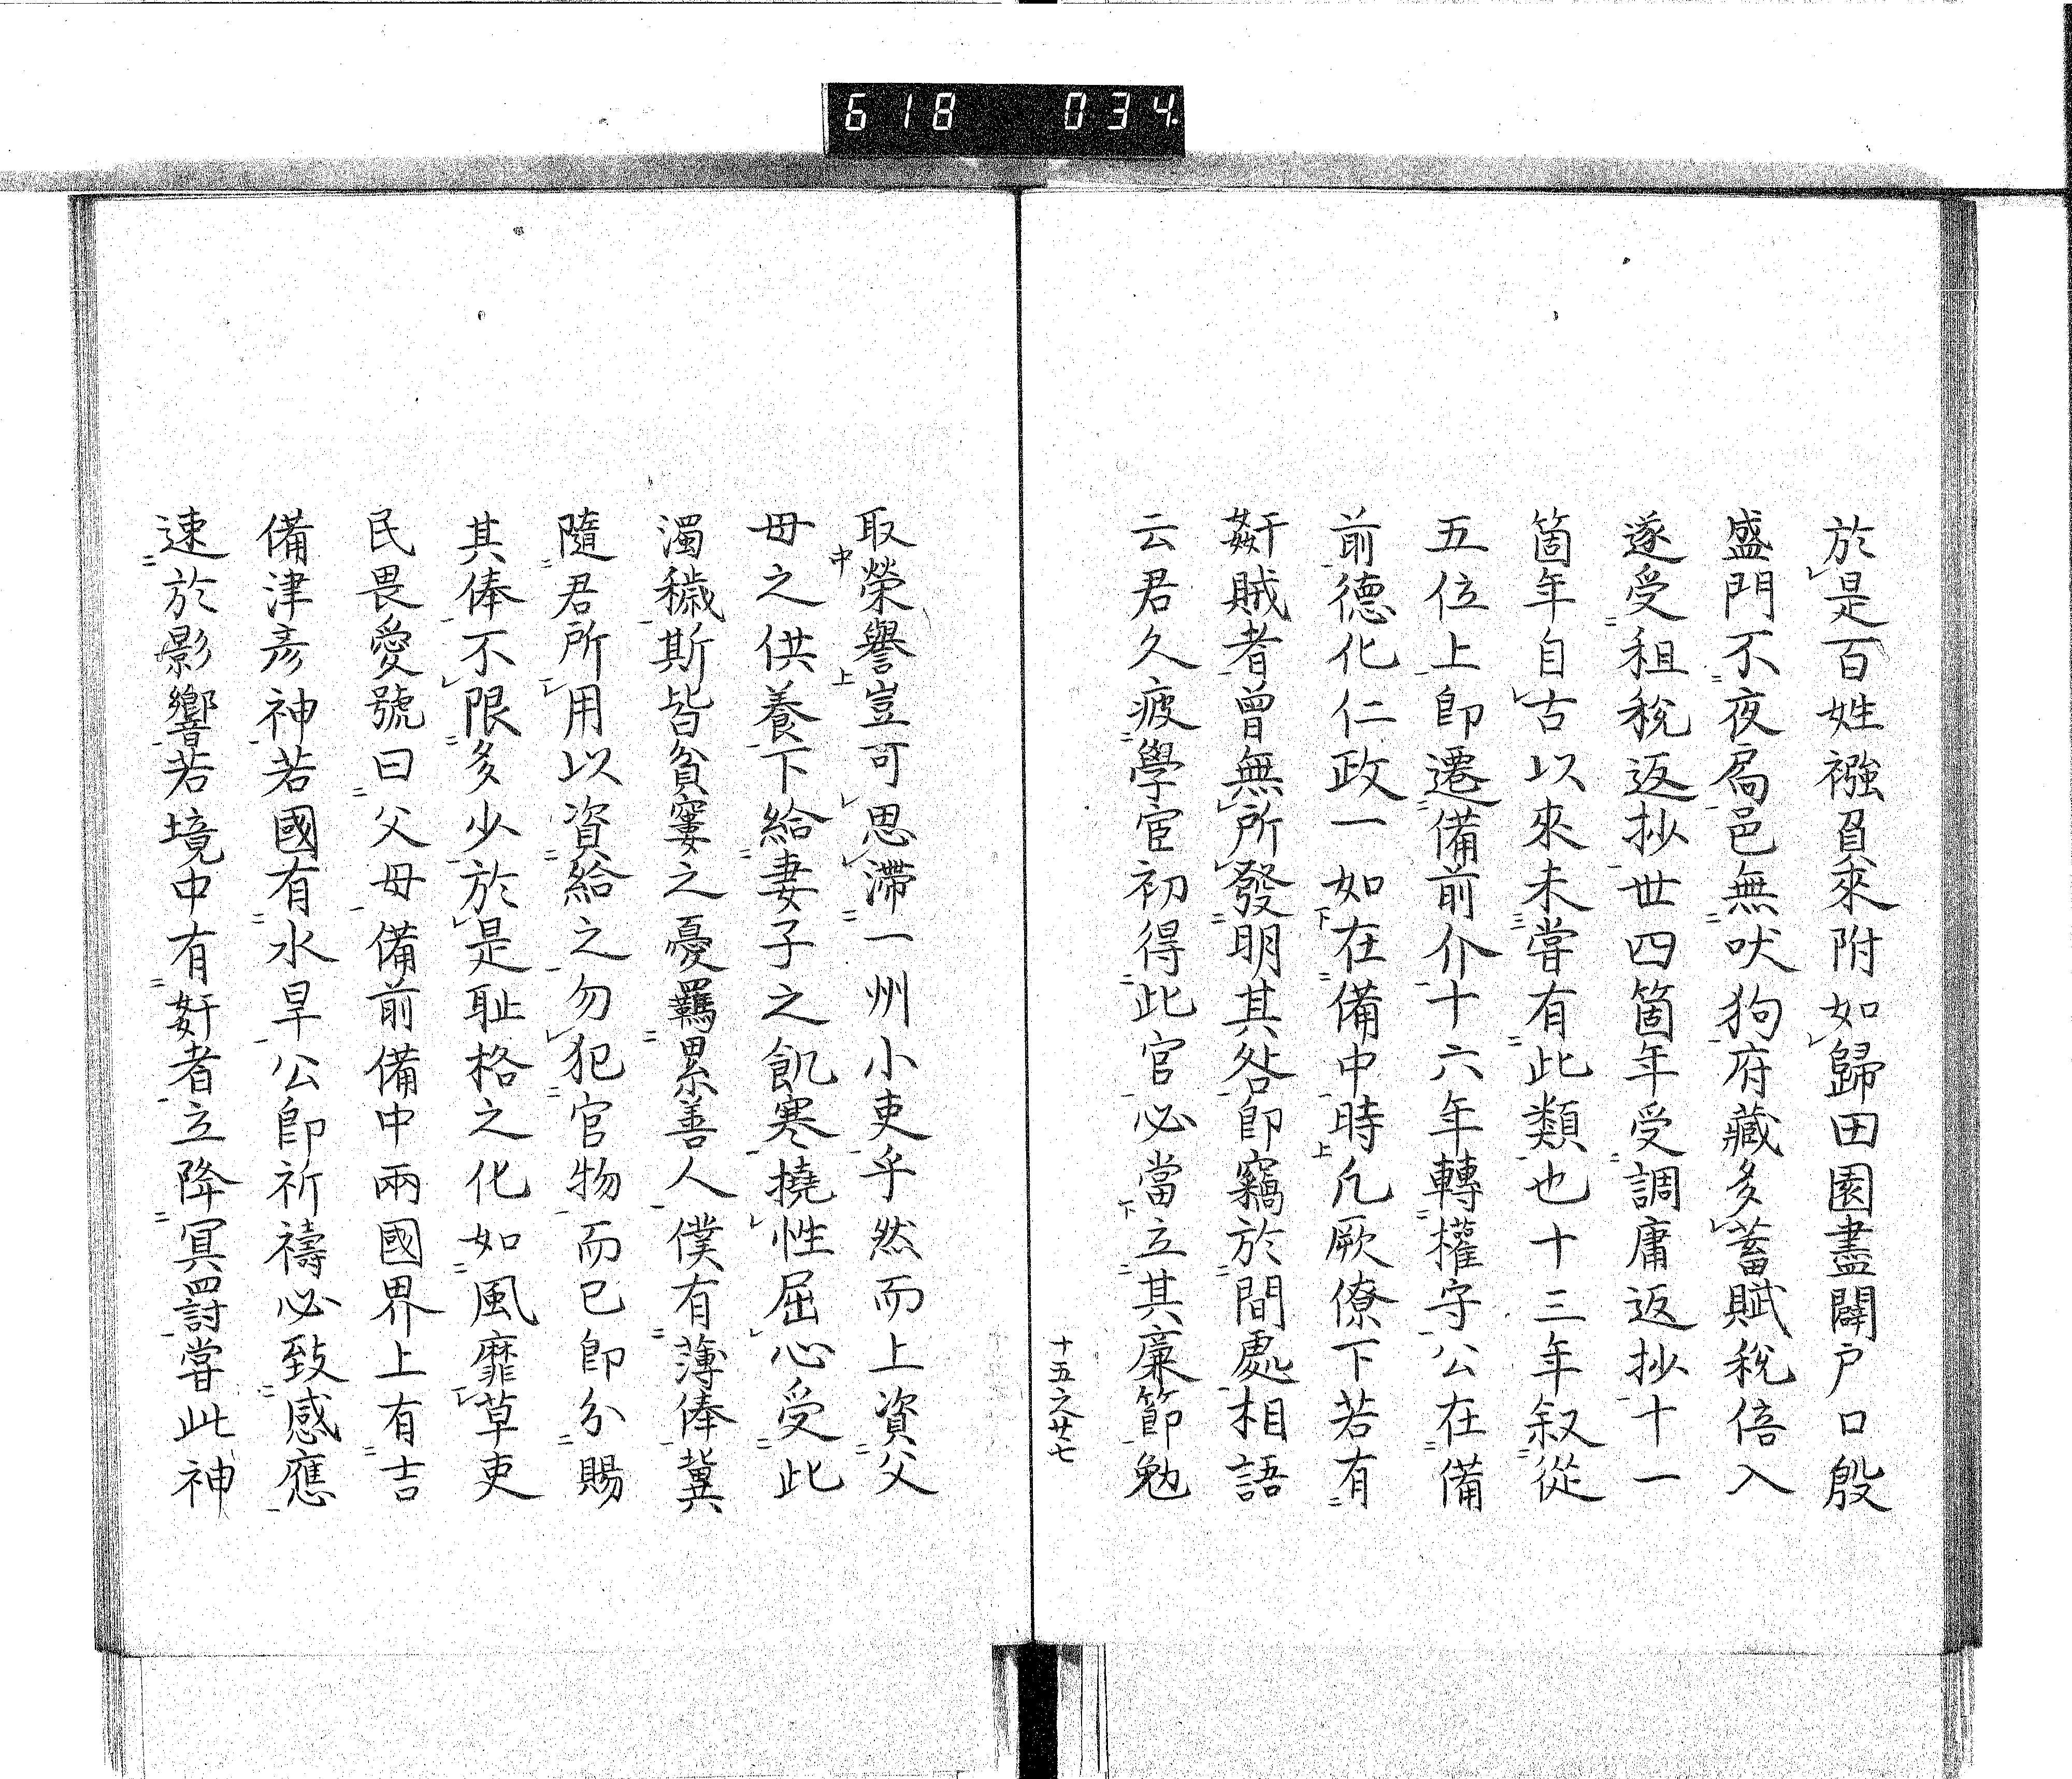 618 034.
於是百姓襁負來附如歸田園盡闢戸口殷
盛門不夜扃邑無吠狗府藏多蓄賦稅倍入
遂受租稅返抄丗四箇年受調庸返抄十一
箇年自古以來未嘗有此類也十三年叙從
五位上即遷備前介十六年轉權守公在備
前德化仁政一如在備中時凡厥僚下若有
姧賊者曾無所發明其咎即竊於間處相語
云君久疲學宦初得此官必當立其廉節勉
十五之廿七
取榮譽豈可思滯一州小吏乎然而上資父
母之供養下給妻子之飢寒撓性屈心受此
濁穢斯皆貧窶之憂羈累善人僕有薄俸冀
隨君所用以資給之勿犯官物而已即分賜
其俸不限多少於是耻格之化如風靡草吏
民畏愛號曰父母備前備中兩國界上有吉
備津彥神若國有水旱公即祈禱必致感應
速於影響若境中有姧者立降冥罸嘗此神